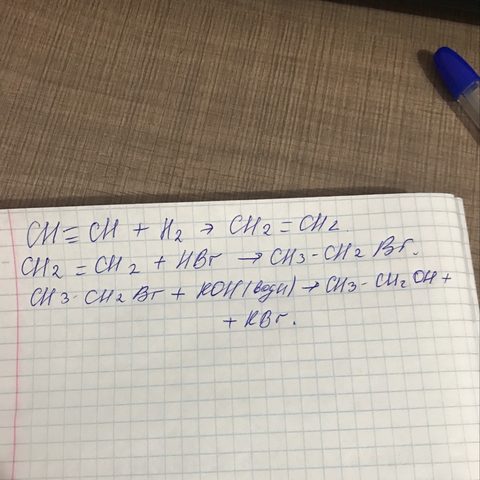 CH≡CH + H₂ → CH₂=CH₂
CH₂=CH₂ + HBr → CH₃-CH₂Br.
CH₃-CH₂Br + KOH(водн) → CH₃-CH₂OH +
+ KBr.